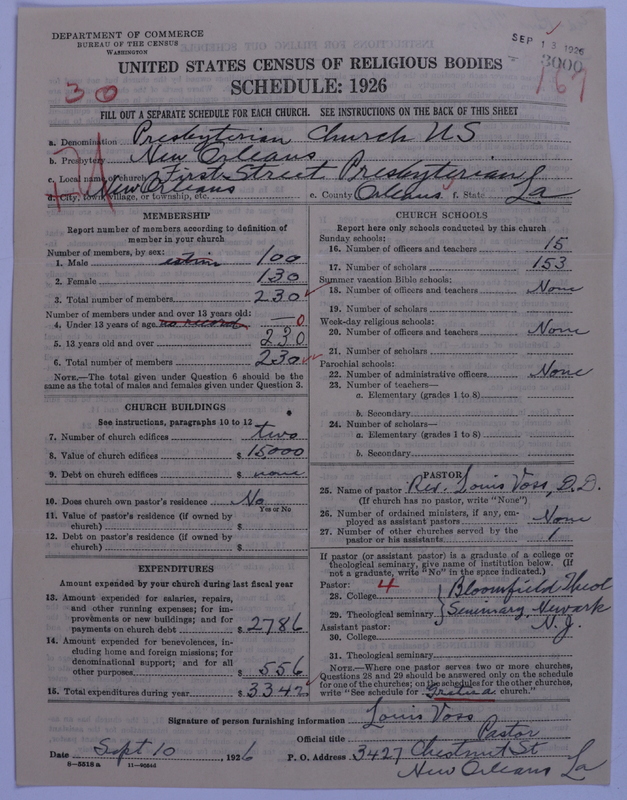 DEPARTMENT OF COMMERCE
BUREAU OF THE CENSUS
WASHINGTON
SEP 13 1926
3000
167
30
UNITED STATES CENSUS OF RELIGIOUS BODIES
SCHEDULE: 1926
FILL OUT A SEPARATE SCHEDULE FOR EACH CHURCH. SEE INSTRUCTIONS ON THE BACK OF THIS SHEET
a. Denomination Presbyterian Church US
b. Presbytery New Orleans
c. Local name of church First Street Presbyterian
d. City, town, village, or township, etc. New Orleans e. County Orleans f. State La
MEMBERSHIP
Report number of members according to definition of
member in your church
Number of members, by sex:
1. Male 100
2. Female 130
3. Total number of members 230
Number of members under and over 13 years old:
4. Under 13 years of age no record — 0
5. 13 years old and over 230
6. Total number of members 230
NOTE.—The total given under Question 6 should be
the same as the total of males and females given under Question 3.
CHURCH BUILDINGS
See instructions, paragraphs 10 to 12
7. Number of church edifices two
8. Value of church edifices $ 15000
9. Debt on church edifices $ none
10. Does church own pastor's residence No
Yes or No
11. Value of pastor's residence (if owned by
church) $
12. Debt on pastor's residence (if owned by
church) $
EXPENDITURES
Amount expended by your church during last fiscal year
13. Amount expended for salaries, repairs,
and other running expenses; for im-
provements or new buildings; and for
payments on church debt $ 2786
14. Amount expended for benevolences, in-
cluding home and foreign missions; for
denominational support; and for all
other purposes $ 556
15. Total expenditures during year $ 3342
CHURCH SCHOOLS
Report here only schools conducted by this church
Sunday schools:
16. Number of officers and teachers 15
17. Number of scholars 153
Summer vacation Bible schools:
18. Number of officers and teachers None
19. Number of scholars
Week-day religious schools:
20. Number of officers and teachers None
21. Number of scholars
Parochial schools:
22. Number of administrative officers None
23. Number of teachers—
a. Elementary (grades 1 to 8)
b. Secondary
24. Number of scholars—
a. Elementary (grades 1 to 8)
b. Secondary
PASTOR
25. Name of pastor Rev. Louis Voss, D.D.
(If church has no pastor, write "None")
26. Number of ordained ministers, if any, em-
ployed as assistant pastors None
27. Number of other churches served by the
pastor or his assistants 1
If pastor (or assistant pastor) is a graduate of a college or
theological seminary, give name of institution below. (If
not a graduate, write "No" in the space indicated.)
Pastor: 4
28. College Bloomfield Theol
29. Theological seminary Seminary, Newark
Assistant pastor: N. J.
30. College
31. Theological seminary
NOTE.—Where one pastor serves two or more churches,
Questions 28 and 29 should be answered only on the schedule
for one of the churches; on the schedules for the other churches,
write "See schedule for church."
Signature of person furnishing information Louis Voss
Official title Pastor
Date Sept 10, 1926 P. O. Address 3427 Chestnut St
New Orleans La
8-5518a 11-9084d